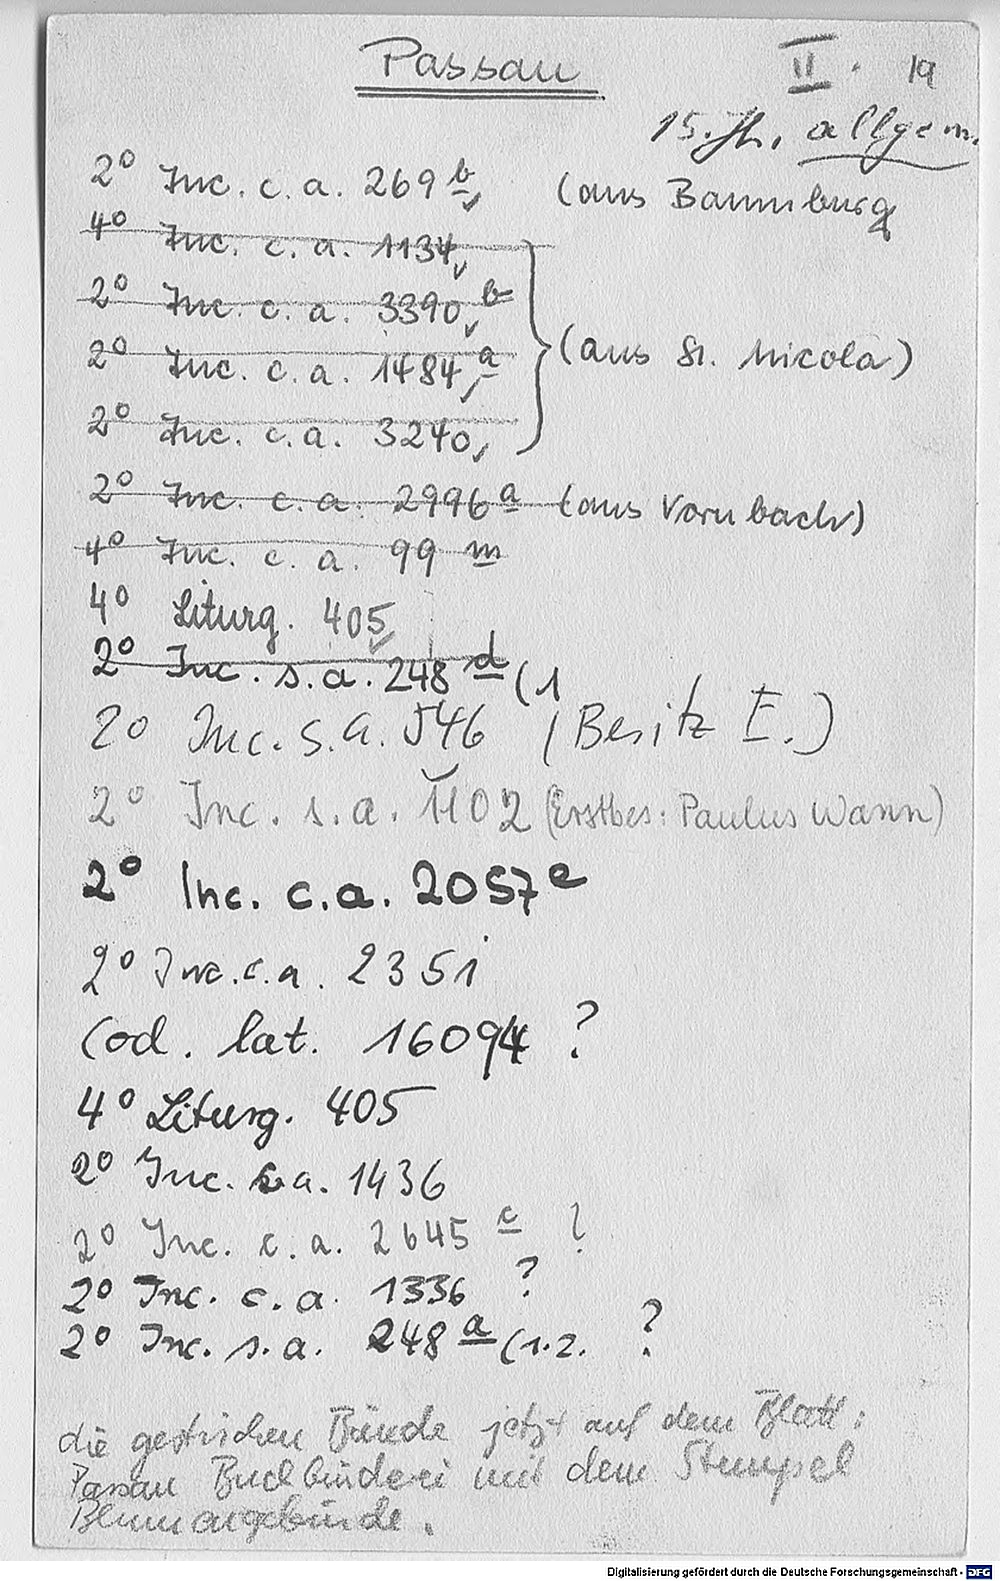 Passau II. 19
15. Jh. allgem.
2° Inc. c. a. 269 b (aus Baumburg
4° Inc. c. a. 1134
2° Inc. c. a. 3390 b
2° Inc. c. a. 1484 a (aus St. Nicola)
2° Inc. c. a. 3240
2° Inc. c. a. 2996 a (aus Vornbach)
4° Inc. c. a. 99 m
4° Liturg. 405
2° Inc. s. a. 248 d (1
2° Inc. s. a. 546 (Besitz E.)
2° Inc. s. a. 1102 (Erstbes: Paulus Wann)
2° Inc. c. a. 2057 e
2° Inc. c. a. 2351
Cod. lat. 16094 ?
4° Liturg. 405
2° Inc. a. 1436
2° Inc. c. a. 2645 c ?
2° Inc. c. a. 1336 ?
2° Inc. s. a. 248 a (1.2. ?
die gestrichen Bände jetzt auf dem Blatt:
Passau Buchbinderei mit dem Stempel
Blumengebinde.
Digitalisierung gefördert durch die Deutsche Forschungsgemeinschaft - DFG